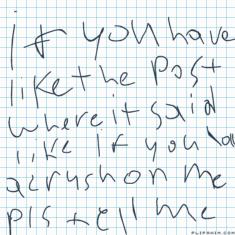 if you have
like the post
where it said
like if you ha
a crush on me
pls tell me
FLIPANIM.COM